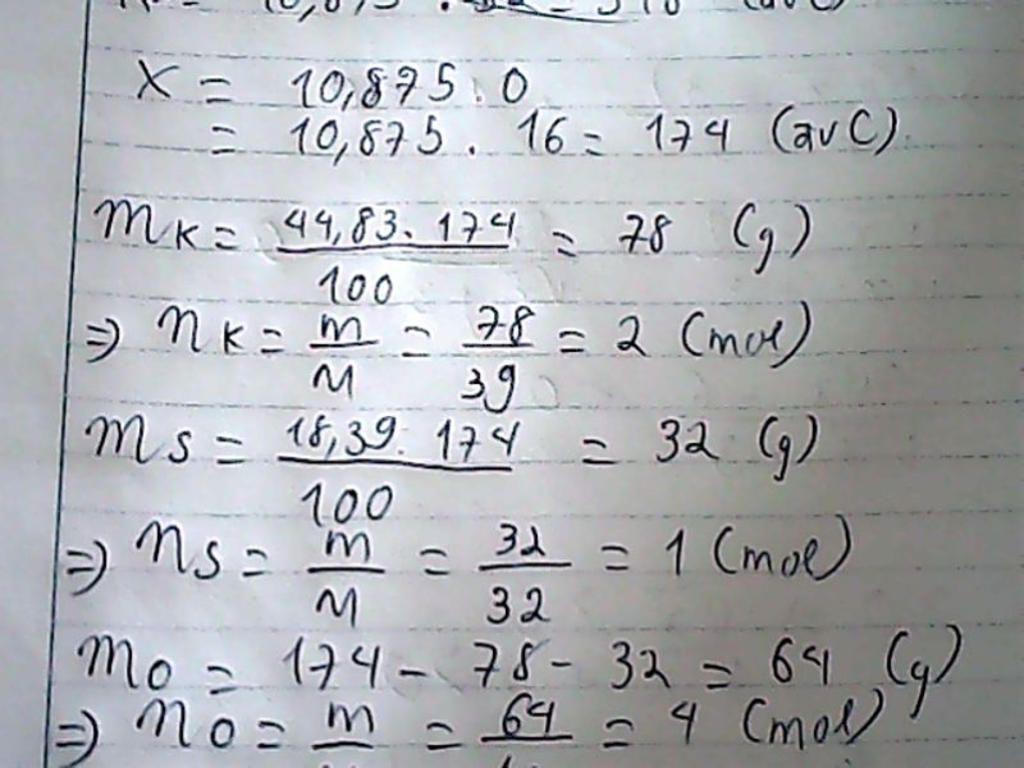 X = 10,875 . O
= 10,875 . 16 = 174 (đvC)
mK = 44,83 . 174 / 100 = 78 (g)
=> nK = m/M = 78/39 = 2 (mol)
mS = 18,39 . 174 / 100 = 32 (g)
=> nS = m/M = 32/32 = 1 (mol)
mO = 174 - 78 - 32 = 64 (g)
=> nO = m = 64 = 4 (mol)